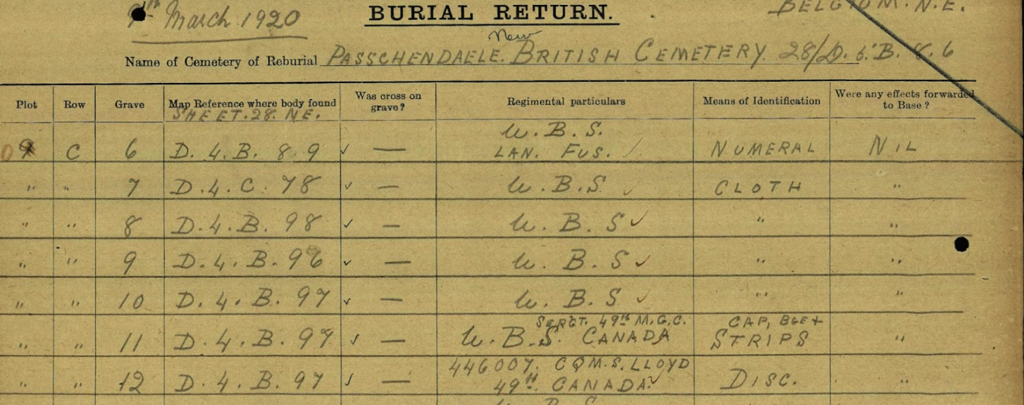 March 1920
BURIAL RETURN.
BELGIUM. N.E.
New
Name of Cemetery of Reburial PASSCHENDAELE. BRITISH CEMETERY. 28/D. 5. B. 8. 6
Plot Row Grave Map Reference where body found Was cross on grave? Regimental particulars Means of Identification Were any effects forwarded to Base?
SHEET. 28. NE.
U. B. S.
C 6 D. 4. B. 8 9 ✓ — LAN. FUS. ✓ NUMERAL NIL
" " 7 D. 4. C. 78 ✓ — U. B. S ✓ CLOTH "
" " 8 D. 4. B. 98 ✓ — U. B. S ✓ " "
" " 9 D. 4. B. 96 ✓ — U. B. S ✓ " "
" " 10 D. 4. B. 97 ✓ — U. B. S ✓ " "
SERGT. 49th M.G.C. CAP, BGE +
" " 11 D. 4. B. 97 ✓ — U. B. S. CANADA STRIPS "
446007. CQM.S. LLOYD
" " 12 D. 4. B. 97 ✓ — 49th CANADA. ✓ DISC. "
U. B. S